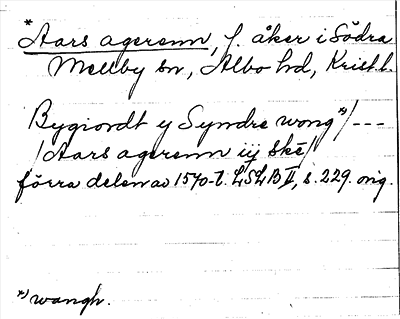 *Aars agerenn, f. åker i Södra
Mellby sn, Albo hd, Kristl.
Bygiordt y Syndre wong*)/---
/Aars agerenn iij Skē/
förra delen av 1570-t. LSLB II, s. 229. orig.
*) wangh.